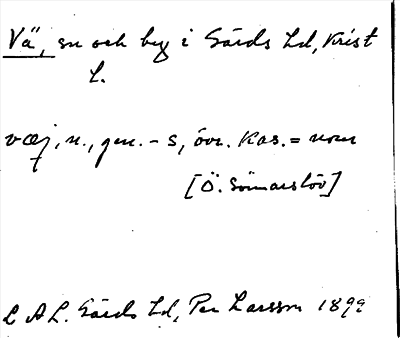 Vä, sn och by i Gärds hd, Krist
l.
væj, n., gen. - s, övr. kas. = nom
[Ö. Sönnarslöv]
L A L. Gärds hd, Per Larsson 1899